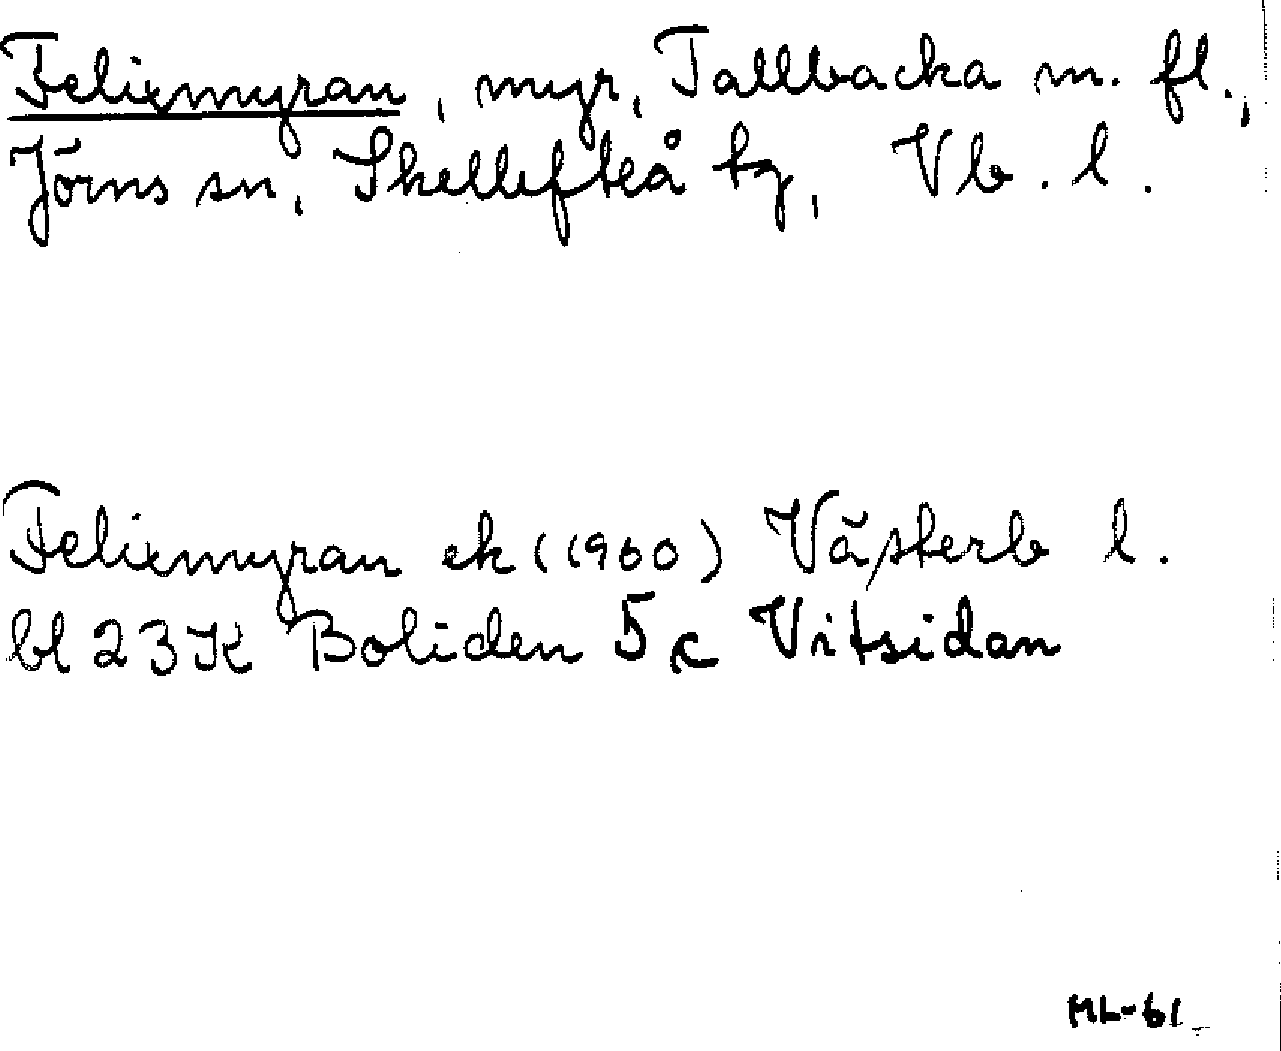 Felixmyran, myr, Tallbacka m. fl.,
Jörns sn, Skellefteå tg, Vb. l.
Felixmyran ek (1960) Västerb l.
bl 23 K Boliden 5 c Vitsidan
ML-61